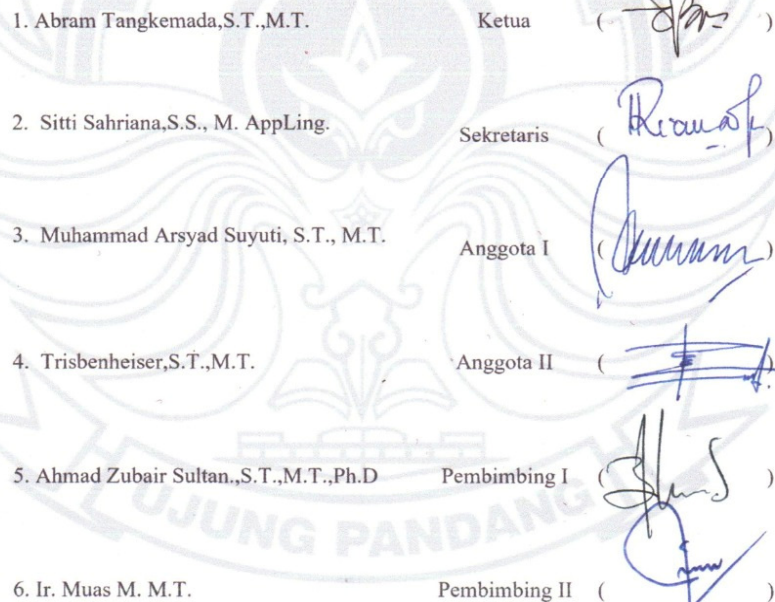 1. Abram Tangkemada,S.T.,M.T. Ketua ( )
2. Sitti Sahriana,S.S., M. AppLing. Sekretaris ( )
3. Muhammad Arsyad Suyuti, S.T., M.T. Anggota I ( )
4. Trisbenheiser,S.T.,M.T. Anggota II ( )
5. Ahmad Zubair Sultan.,S.T.,M.T.,Ph.D Pembimbing I ( )
UJUNG PANDANG
6. Ir. Muas M. M.T. Pembimbing II ( )